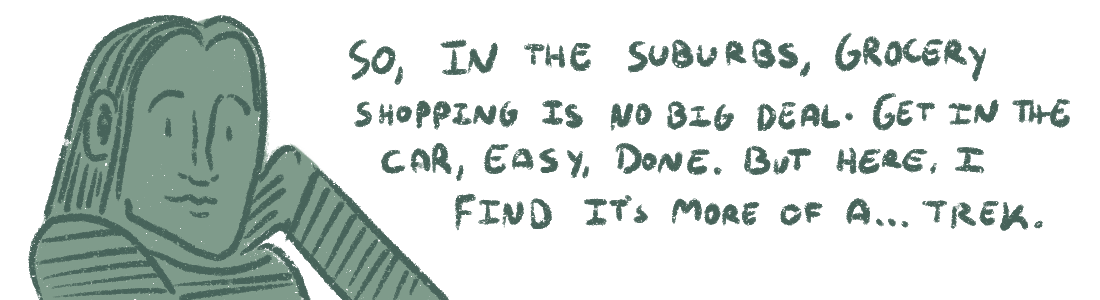 SO, IN THE SUBURBS, GROCERY
SHOPPING IS NO BIG DEAL. GET IN THE
CAR, EASY, DONE. BUT HERE, I
FIND IT'S MORE OF A... TREK.